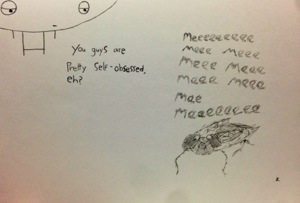 You guys are
Pretty self-obsessed,
eh?
Meeeeeeeee
Meee Meee
Meee Meee
Meee Meee
Mee
Meeeeeeee